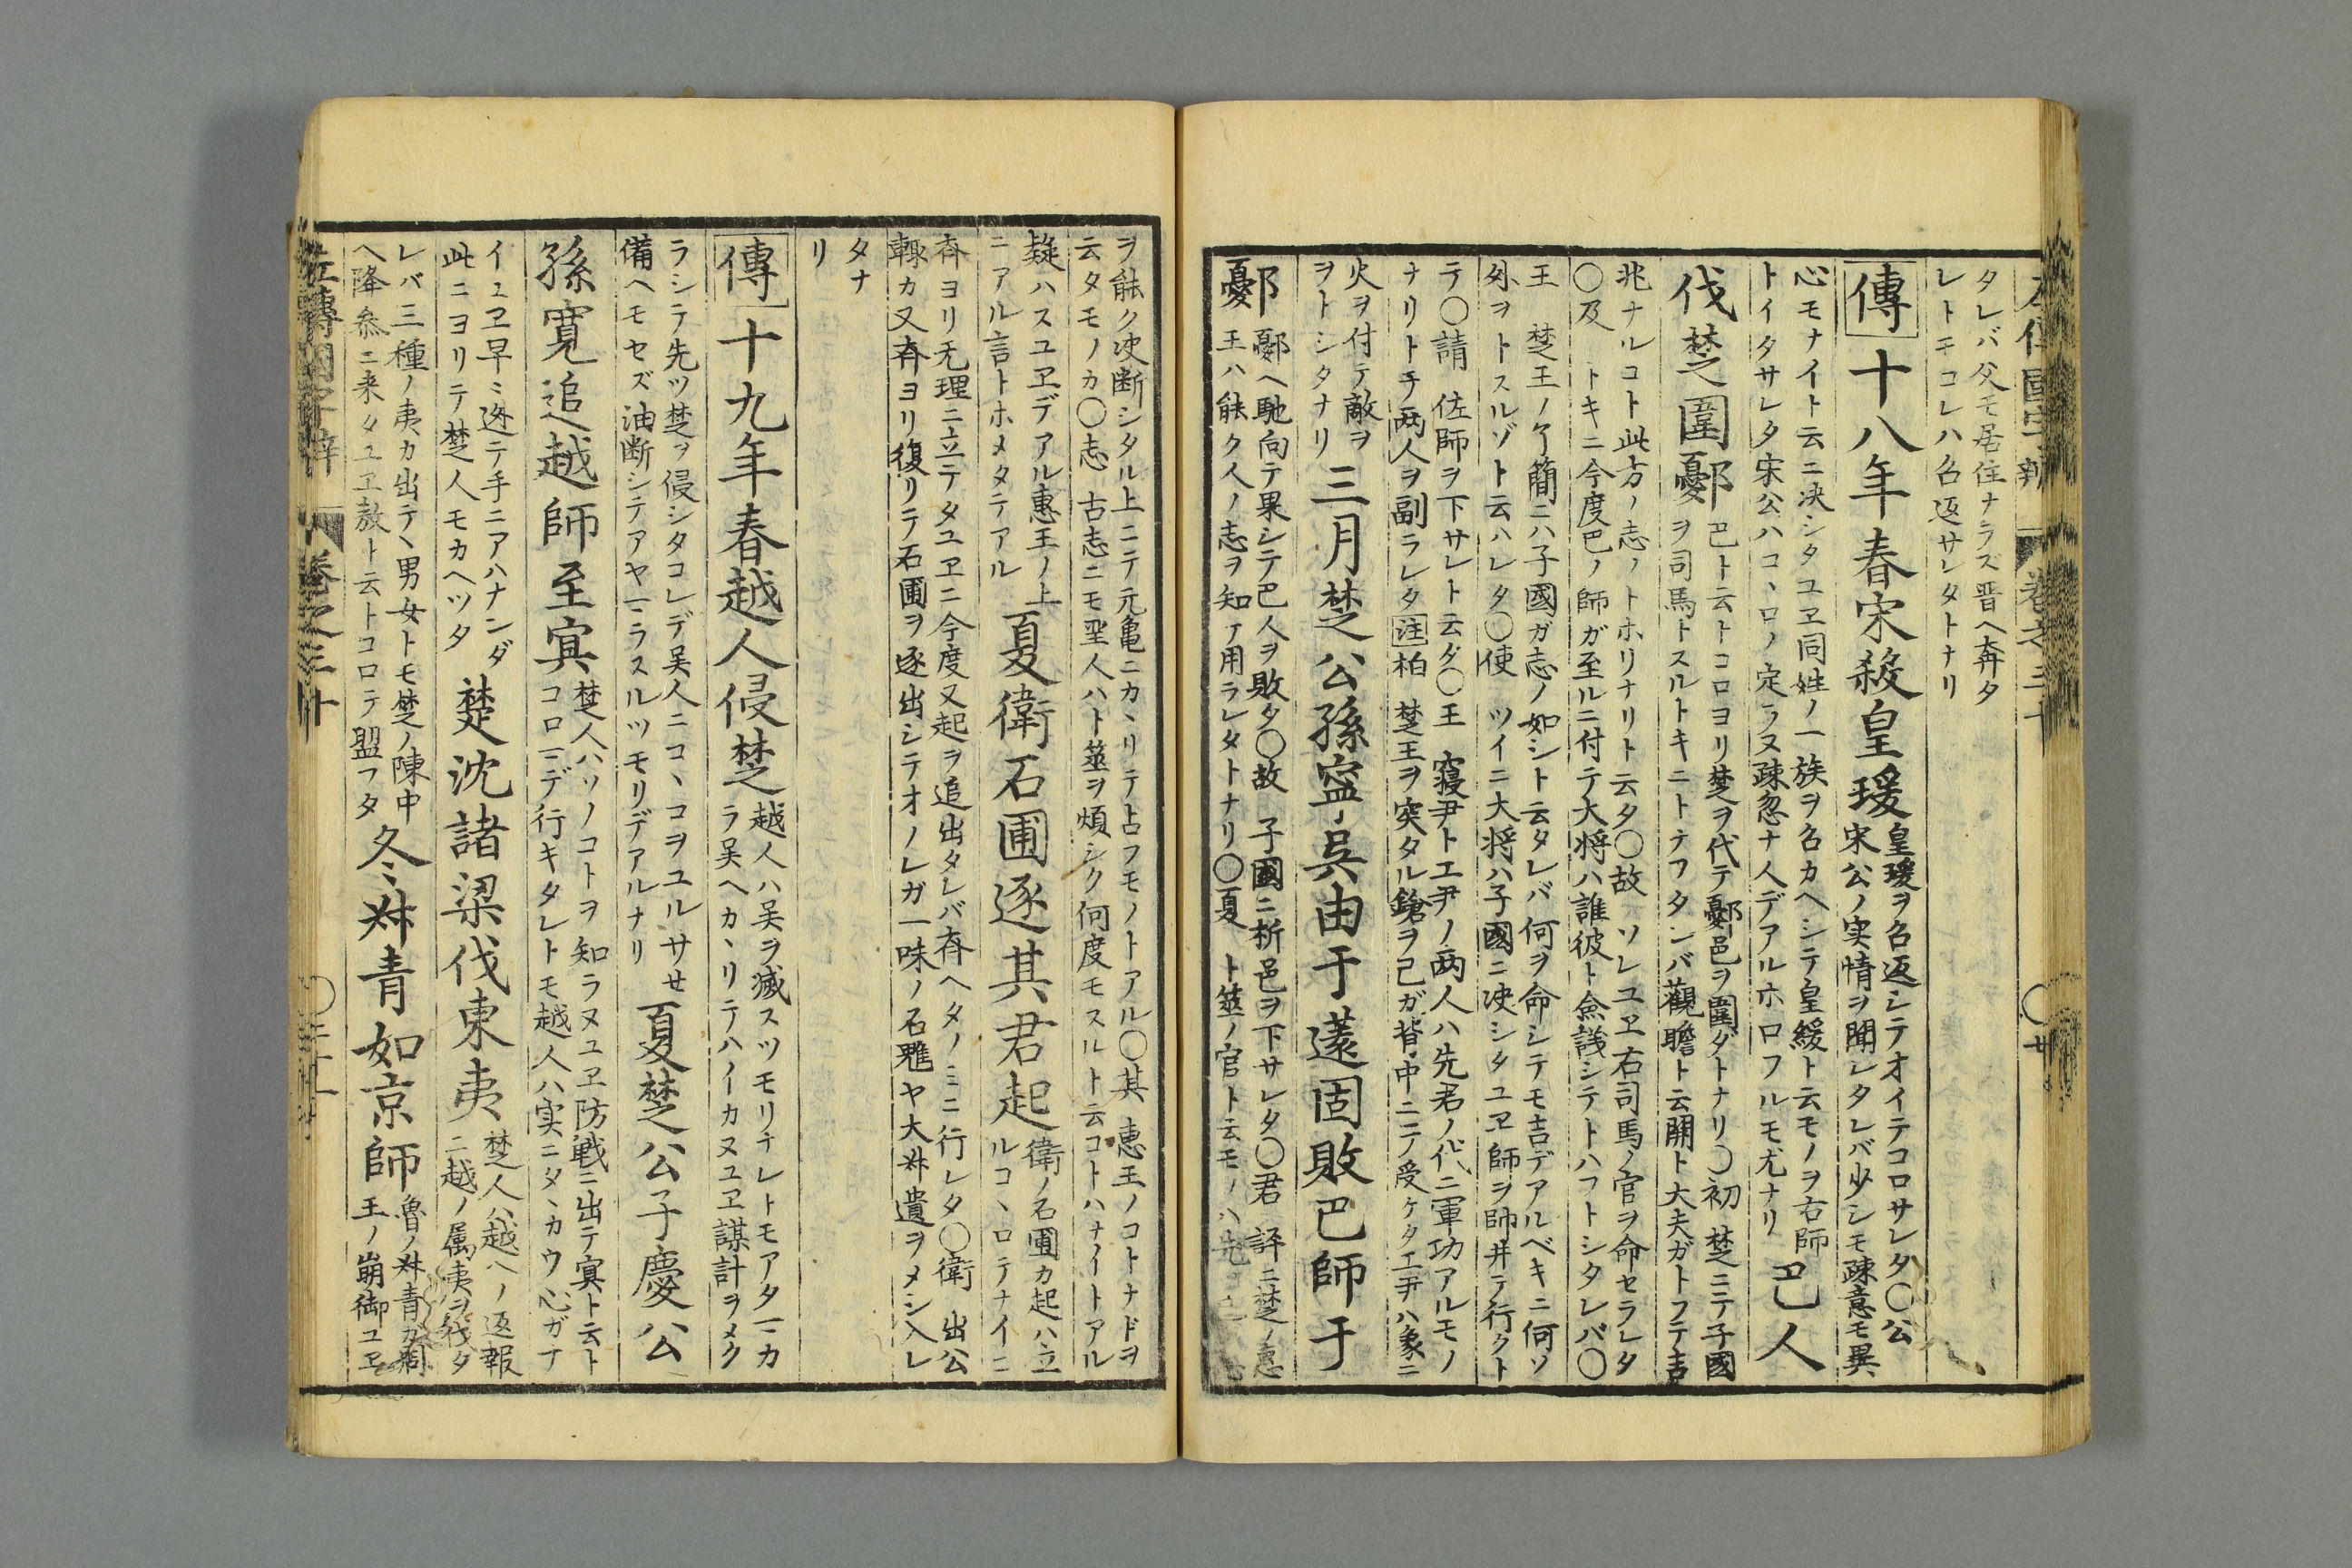 タレバ父モ居住ナラズ晋ヘ奔タ
レトモコレハ名返サレタトナリ
傳 十八年春宋殺皇瑗
皇瑗ヲ名返シテオイテコロサレタ〇公
宋公ノ実情ヲ聞レタレバ少シモ疎意モ異
心モナイト云ニ决シタユヱ同姓ノ一族ヲ名カヘシテ皇緩ト云モノヲ右師
トイタサレタ宋公ハコヽロノ定ラヌ疎忽ナ人デアルホロフルモ尤ナリ
巴人
伐楚圍鄾
巴ト云トコロヨリ楚ヲ代テ鄾邑ヲ圍ダトナリ〇初 楚ニテ子國
ヲ司馬トスルトキニトテフタンバ觀瞻ト云開ト大夫ガトフテ吉
兆ナルコト此方ノ志ノトホリナリト云タ〇故 ソレユヱ右司馬ノ官ヲ命セラレタ
〇及 トキニ今度巴ノ師ガ至ルニ付テ大将ハ誰彼ト僉議シテトハフトシタレバ〇
王 楚王ノ了簡ニハ子國ガ志ノ如シト云タレバ何ヲ命シテモ吉デアルベキニ何ソ
外ヲトスルゾト云ハレタ〇使 ツイニ大将ハ子國ニ决シタユヱ師ヲ帥并テ行クト
テ〇請 佐師ヲ下サレト云タ〇王 寝尹ト工尹ノ两人ハ先君ノ代ニ軍功アルモノ
ナリトテ两人ヲ副ラレタ 注 柏 楚王ヲ突タル鎗ヲ己ガ背中ニテ受ケタ工尹ハ象ニ
火ヲ付テ敵ヲ
ヲトシタナリ
三月楚公孫寧呉由于薳固敗巴師于
鄾
鄾ヘ馳向テ果シテ巴人ヲ敗タ〇故 子國ニ析邑ヲ下サレタ〇君 評ニ楚ノ惠
王ハ能ク人ノ志ヲ知テ用ラレタトナリ〇夏 ト筮ノ官ト云モノハ
ヲ能ク决断シタル上ニテ元亀ニカヽリテ占フモノトアル〇其 惠王ノコトナドヲ
云タモノカ〇志 古志ニモ聖人ハト筮ヲ煩シク何度モスルト云コトハナイトアル
疑ハスユヱデアル惠王ノ上
ニアル言トホメタテアル
夏衛石圃逐其君起
衛ノ石圃カ起ハ立
ルコヽロテナイニ
斉ヨリ无理ニ立テタユヱニ今度又起ヲ追出タレバ斉ヘタノミニ行レタ〇衛 出公
輙カ又斉ヨリ復リテ石圃ヲ逐出シテオノレガ一味ノ石魋ヤ大叔遺ヲメシ入レ
タナ
リ
傳 十九年春越人侵楚
越人ハ呉ヲ滅スツモリテレトモアターカ
ラ呉ヘカヽリテハイカヌユヱ謀計ヲメク
ラシテ先ツ楚ヲ侵シタコレデ呉人ニコヽコヲユルサせ
備ヘモセズ油断シテアヤーラスルツモリデアルナリ
夏楚公子慶公
孫寛追越師至冥
楚人ハソノコトヲ知ラヌユヱ防戦ニ出テ冥ト云ト
コロニデ行キタレトモ越人ハ実ニタヽカウ心ガナ
イユヱ早ミ迯テ手ニアハナンダ
此ニヨリテ楚人モカヘツタ
楚沈諸梁伐東夷
楚人ハ越ヘノ返報
ニ越ノ属夷ヲ伐タ
レバ三種ノ夷カ出テヽ男女トモ楚ノ陳中
ヘ降叅ニ来タユヱ敖ト云トコロテ盟フタ
冬叔青如京師
魯ノ叔青ガ周
王ノ崩御ユヱ
左傳國字辯 卷之三十